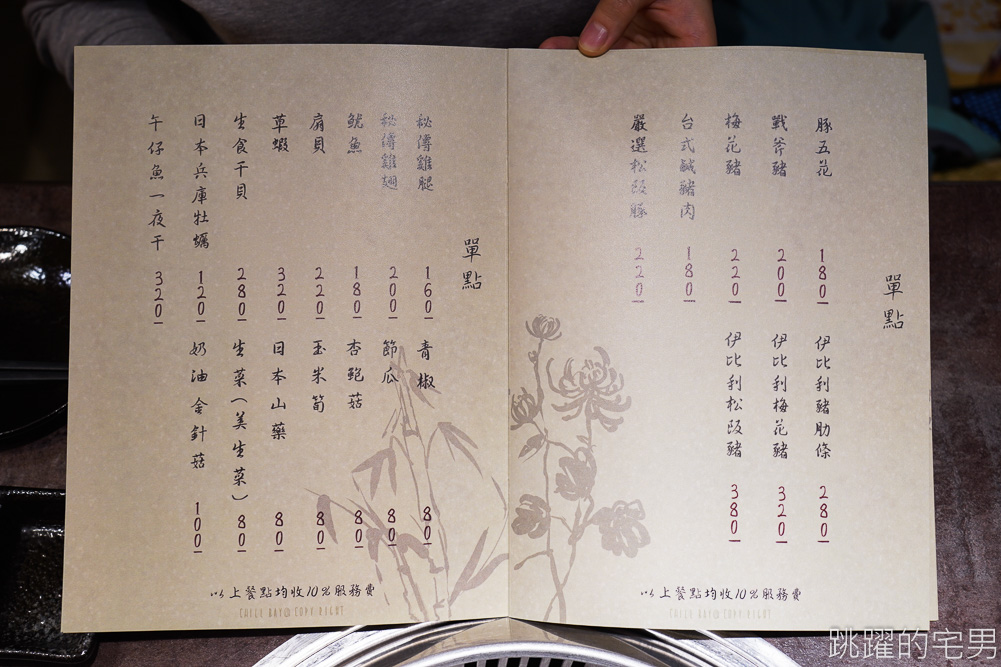 單點
豚五花 180
戰斧豬 200
梅花豬 220
台式鹹豬肉 180
嚴選松阪豚 220
伊比利豬肋條 280
伊比利梅花豬 320
伊比利松阪豬 380
以上餐點均收10%服務費
CHILL BAY@ COPY RIGHT
單點
秘傳雞腿 160
秘傳雞翅 200
魷魚 180
扇貝 220
草蝦 320
生食干貝 280
日本兵庫牡蠣 120
午仔魚一夜干 320
青椒 80
節瓜 80
杏鮑菇 80
玉米筍 80
日本山藥 80
生菜(美生菜) 80
奶油金針菇 100
以上餐點均收10%服務費
CHILL BAY@ COPY RIGHT
跳躍的宅男